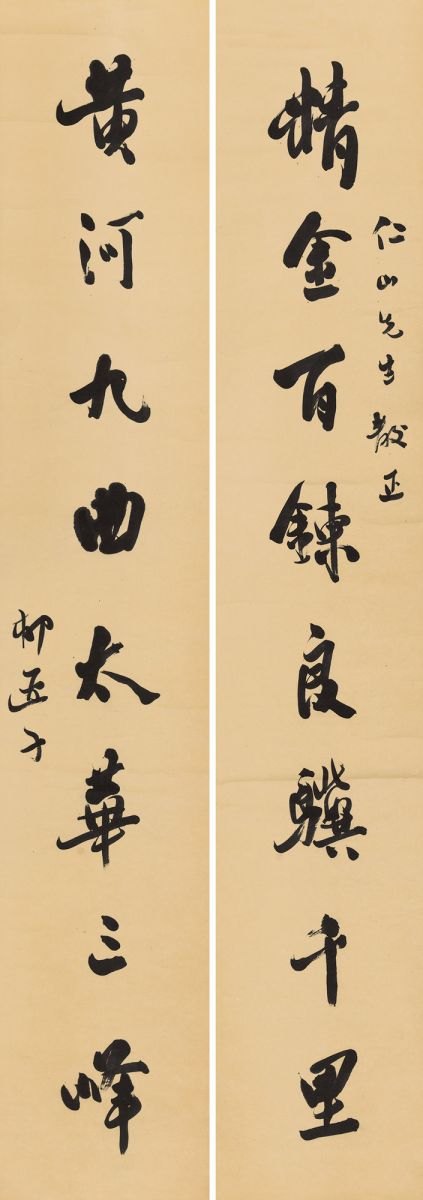 仁山先生教正
精金百鍊良驥千里
黄河九曲太華三峰
柳亞子